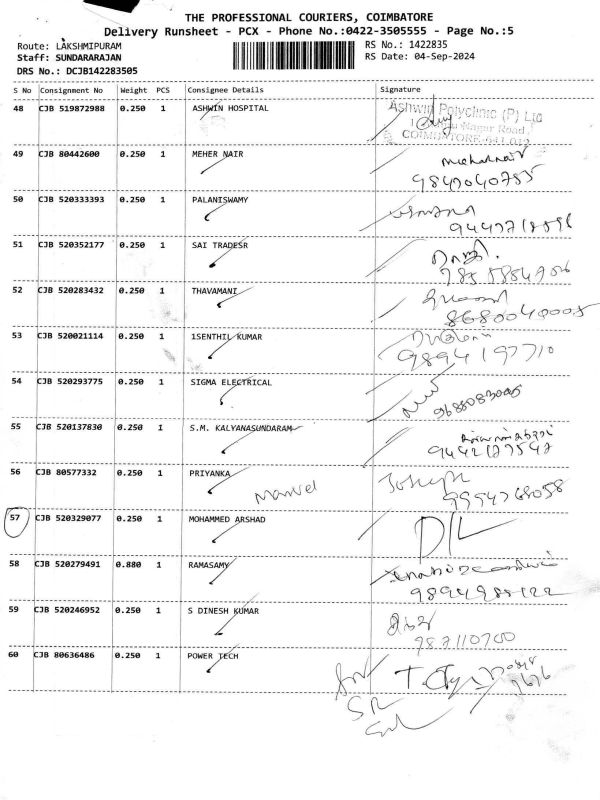 THE PROFESSIONAL COURIERS, COIMBATORE
Delivery Runsheet - PCX - Phone No.:0422-3505555 - Page No.:5
Route: LAKSHMIPURAM RS No.: 1422835
Staff: SUNDARARAJAN RS Date: 04-Sep-2024
DRS No.: DCJB142283505
S No Consignment No Weight PCS Consignee Details Signature
48 CJB 519872988 0.250 1 ASHWIN HOSPITAL
Ashwin Polyclinic (P) Ltd
Nagar Road,
COIMBATORE-641 012
49 CJB 80442600 0.250 1 MEHER NAIR
50 CJB 520333393 0.250 1 PALANISWAMY
51 CJB 520352177 0.250 1 SAI TRADESR
52 CJB 520283432 0.250 1 THAVAMANI
8680040005
53 CJB 520021114 0.250 1 1SENTHIL KUMAR
9894197710
54 CJB 520293775 0.250 1 SIGMA ELECTRICAL
55 CJB 520137830 0.250 1 S.M. KALYANASUNDARAM
9442127547
56 CJB 80577332 0.250 1 PRIYANKA Joseph
9994768058
57 CJB 520329077 0.250 1 MOHAMMED ARSHAD D/L
58 CJB 520279491 0.880 1 RAMASAMY
59 CJB 520246952 0.250 1 S DINESH KUMAR
60 CJB 80636486 0.250 1 POWER TECH
SR